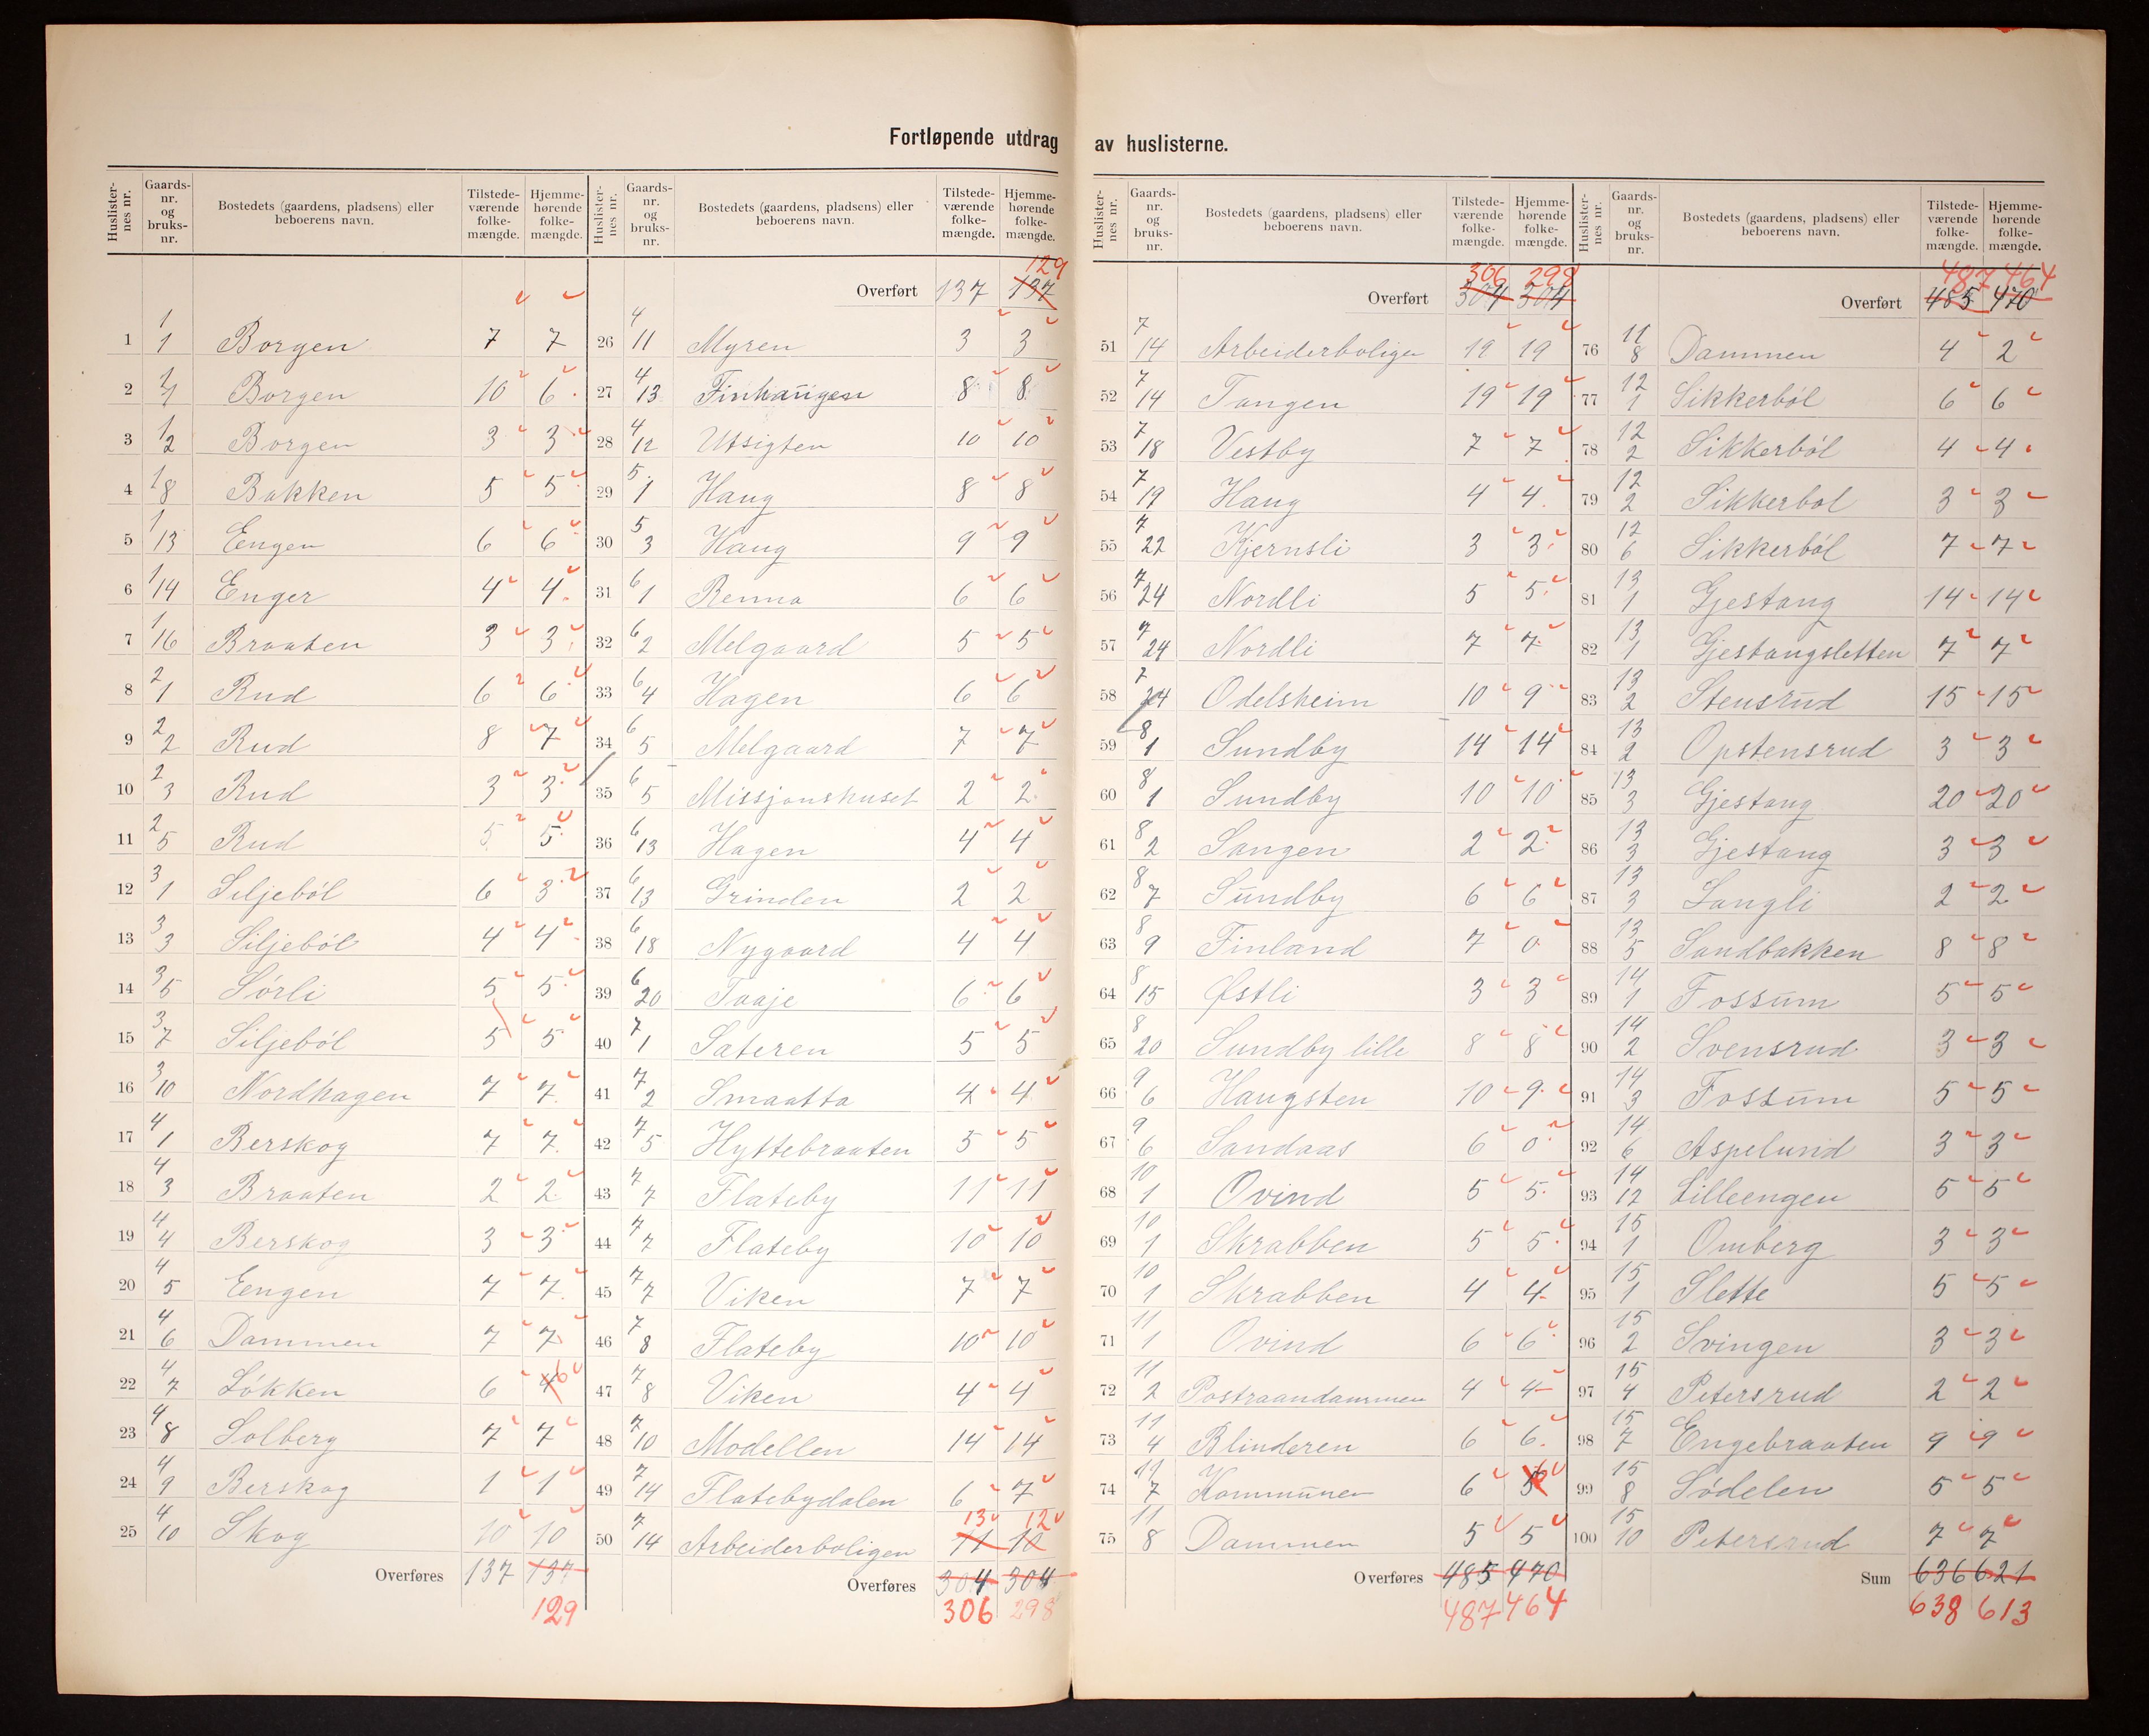 Fortløpende utdrag av huslisterne.
Huslisternes nr. Gaardsnr. og bruksnr. Bostedets (gaardens, pladsens) eller beboerens navn. Tilstedeværende folkemængde. Hjemmehørende folkemængde.
1 1/1 Borgen 7 7
2 1/1 Borgen 10 6
3 1/2 Borgen 3 3
4 1/8 Bakken 5 5
5 1/13 Engen 6 6
6 1/14 Enger 4 4
7 1/16 Braaten 3 3
8 2/1 Rud 6 6
9 2/2 Rud 8 7
10 2/3 Rud 3 3
11 2/5 Rud 5 5
12 3/1 Siljeból 6 3
13 3/3 Siljeból 4 4
14 3/5 Sórli 5 5
15 3/7 Siljeból 5 5
16 3/10 Nordhagen 7 7
17 4/1 Berskog 7 7
18 4/3 Braaten 2 2
19 4/4 Berskog 3 3
20 4/5 Eengen 7 7
21 4/6 Dammen 7 7
22 4/7 Lókken 6 4 6
23 4/8 Solberg 7 7
24 4/9 Berskog 1 1
25 4/10 Skog 10 10
Overføres 137 137
129
Huslisternes nr. Gaardsnr. og bruksnr. Bostedets (gaardens, pladsens) eller beboerens navn. Tilstedeværende folkemængde. Hjemmehørende folkemængde.
129
Overført 137 137
26 4/11 Myren 3 3
27 4/13 Finhaugen 8 8
28 4/12 Utsigten 10 10
29 5/1 Haug 8 8
30 5/3 Haug 9 9
31 6/1 Renna 6 6
32 6/2 Melgaard 5 5
33 6/4 Hagen 6 6
34 6/5 Melgaard 7 7
35 6/5 Missjonshuset 2 2
36 6/13 Hagen 4 4
37 6/13 Grinden 2 2
38 6/18 Nygaard 4 4
39 6/20 Taaje 6 6
40 7/1 Sateren 5 5
41 7/2 Smaatta 4 4
42 7/5 Hyttebraaten 5 5
43 7/7 Flateby 11 11
44 7/7 Flateby 10 10
45 7/7 Viken 7 7
46 7/8 Flateby 10 10
47 7/8 Viken 4 4
48 7/10 Modellen 14 14
49 7/14 Flatebydalen 6 7
13 12
50 7/14 Arbeiderboligen 11 10
Overføres 304 304
306 298
Huslisternes nr. Gaardsnr. og bruksnr. Bostedets (gaardens, pladsens) eller beboerens navn. Tilstedeværende folkemængde. Hjemmehørende folkemængde.
306 298
Overført 304 304
51 7/14 Arbeiderbolige 19 19
52 7/14 Tangen 19 19
53 7/18 Vestby 7 7
54 7/19 Haug 4 4
55 7/22 Kjernsli 3 3
56 7/24 Nordli 5 5
57 7/24 Nordli 7 7
58 7/24 Odelsheim 10 9
59 8/1 Sundby 14 14
60 8/1 Sundby 10 10
61 8/2 Sangen 2 2
62 8/7 Sundby 6 6
63 8/9 Finland 7 0
64 8/15 Østli 3 3
65 8/20 Sundby lille 8 8
66 9/6 Haugsten 10 9
67 9/6 Sandaas 6 0
68 10/1 Ovind 5 5
69 10/1 Skrabben 5 5
70 10/1 Skrabben 4 4
71 11/1 Ovind 6 6
72 11/2 Postraandammen 4 4
73 11/4 Blinderen 6 6
74 11/7 Kommunen 6
75 11/8 Dammen 5 5
Overføres 485 470
487 464
Huslisternes nr. Gaardsnr. og bruksnr. Bostedets (gaardens, pladsens) eller beboerens navn. Tilstedeværende folkemængde. Hjemmehørende folkemængde.
487 464
Overført 485 470
76 11/8 Dammen 4 2
77 12/1 Sikkerból 6 6
78 12/2 Sikkerból 4 4
79 12/2 Sikkerbol 3 3
80 12/6 Sikkerból 7 7
81 13/1 Gjestang 14 14
82 13/1 Gjestangsletten 7 7
83 13/2 Stensrud 15 15
84 13/2 Opstensrud 3 3
85 13/3 Gjestang 20 20
86 13/3 Gjestang 3 3
87 13/3 Langli 2 2
88 13/5 Sandbakken 8 8
89 14/1 Fossum 5 5
90 14/2 Svensrud 3 3
91 14/3 Fossum 5 5
92 14/6 Aspelund 3 3
93 14/12 Lilleengen 5 5
94 15/1 Omberg 3 3
95 15/1 Slette 5 5
96 15/2 Svingen 3 3
97 15/4 Petersrud 2 2
98 15/7 Engebraaten 9 9
99 15/8 Södelen 5 5
100 15/10 Petersrud 7 7
Sum 636 621
638 613